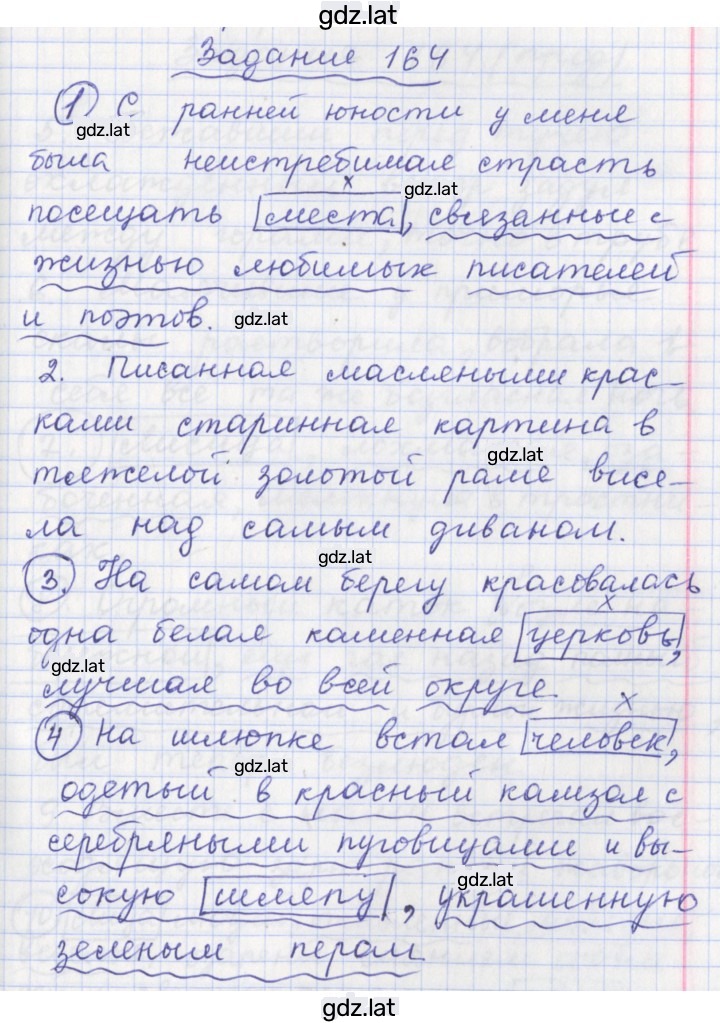 gdz.lat
Задание 164
1 С ранней юности у меня
gdz.lat
была неистребимая страсть
gdz.lat
посещать места, связанные с
жизнью любимых писателей
и поэтов. gdz.lat
2. Писанная масляными крас-
ками старинная картина в
gdz.lat
тяжелой золотой раме висе-
ла над самым диваном.
gdz.lat
3. На самом берегу красовалась
одна белая каменная церковь,
gdz.lat
лучшая во всей округе.
4 На шлюпке встал человек,
gdz.lat
одетый в красный камзол с
серебряными пуговицами и вы-
gdz.lat
сокую шляпу, украшенную
зеленым пером
gdz.lat